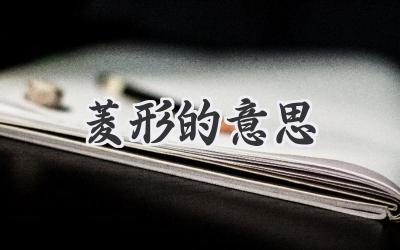 菱形的意思